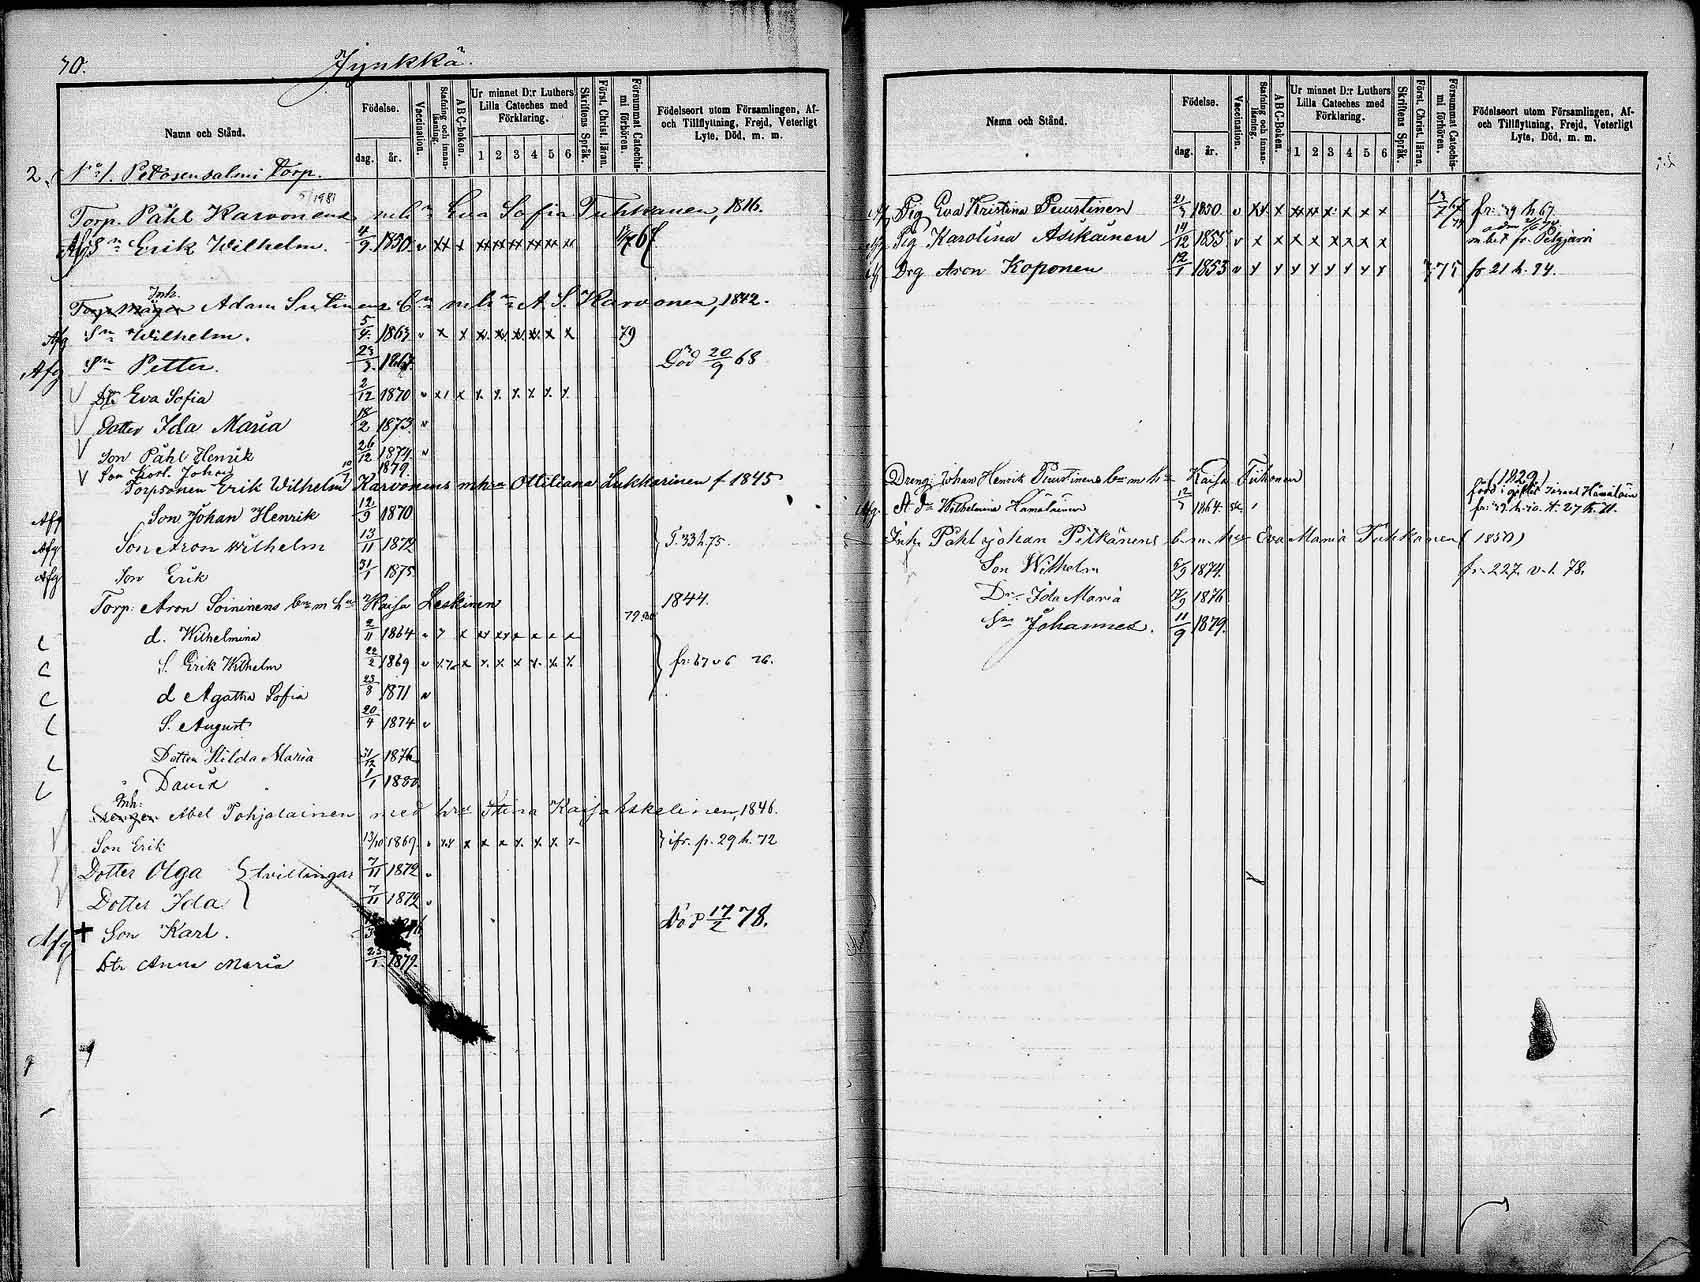 70.
Jynkkä.
Namn och Stånd.
Födelse.
dag.
år.
Vaccination.
Stafning och innan-läsning.
A B C-boken.
Ur minnet D:r Luthers Lilla Cateches med Förklaring.
1 2 3 4 5 6
Skriftens Språk.
Först. Christ. läran.
Försummat Catechis-mi förhören.
Födelseort utom Församlingen, Af- och Tillflyttning, Frejd, Veterligt Lyte, Död, m. m.
2. No 1. Petosensalmi Torp.
Torp. Påhl Karvonens m h:u Eva Sofia Tuhkanen, 1816.
Afg Sn Erik Wilhelm. 4/9 1850 v
Inh. Adam Sutinens b:n m h:u A. S. Karvonen, 1842.
Afg Sn Wilhelm. 5/4 1863 79
Afg Sn Petter. Död 20/9 68
Dr Eva Sofia 2/12 1870
Dotter Ida Maria 18/2 1873
Son Påhl Henrik 26/12 1874
Son Karl Johan 1879
Torpsonen Erik Wilhelm Karvonens m h:u Ottiliana Lukkarinen f 1845
Afg Son Johan Henrik 12/9 1870
Afg Son Aron Wilhelm 13/11 1872
Afg Son Erik 31/1 1875
Torp: Aron Soininens b:n m h:u Kaisa Leskinen 1844.
d. Wilhelmina 2/11 1864
S. Erik Wilhelm 22/2 1869
d Agatha Sofia 23/8 1871
S. August 20/4 1874
Dotter Hilda Maria 31/12 1876
David 1/1 1880
Inh: Abel Pohjalainen med h:u Stina Kaisa Eskelinen, 1846.
Son Erik 13/10 1869 ifr. p. 29 h. 72
Dotter Olga } tvillingar 7/11 1872
Dotter Ida 7/11 1872
Afg Son Karl. Död 17/2 78.
Dtr Anna Maria 23/1 1879
Namn och Stånd.
Födelse.
dag.
år.
Vaccination.
Stafning och innan-läsning.
A B C-boken.
Ur minnet D:r Luthers Lilla Cateches med Förklaring.
1 2 3 4 5 6
Skriftens Språk.
Först. Christ. läran.
Försummat Catechis-mi förhören.
Födelseort utom Församlingen, Af- och Tillflyttning, Frejd, Veterligt Lyte, Död, m. m.
Afg Pig Eva Kristina Puustinen 1850
Pig Karolina Asikainen 14/12 1855
Drg Aron Koponen 12/1 1853 75
Dreng Johan Henrik Puustinens b:n m h:u Kaisa Tiihonen (1829)
Afg. Wilhelmina Hämäläinen 1864
Inh. Påhl Johan Pitkänens b:n m. h:u Eva Maria Tuhkanen (1850)
Son Wilhelm 1874
Dr. Ida Maria 1876
Sn Johannes. 11/9 1879.
fr. 227. v. 1. 78.